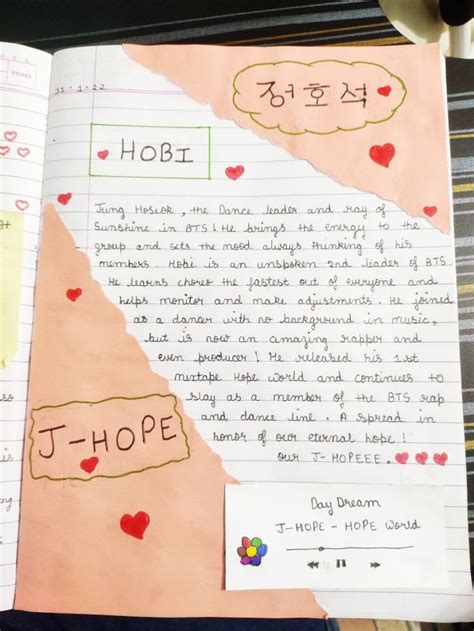 YOUVA
31.1.22
정호석
HOBI
Jung Hoseok, the Dance leader and ray of
Sunshine in BTS! He brings the energy to the
group and sets the mood always thinking of his
members. Hobi is an unspoken 2nd leader of BTS.
He learns choreo the fastest out of everyone and
helps monitor and make adjustments. He joined
as a dancer with no background in music,
but is now an amazing rapper and
even producer! He released his 1st
mixtape Hope World and continues to
slay as a member of the BTS rap
and dance line. A spread in
honor of our eternal hope!
Our J-HOPEEE.
J-HOPE
Day Dream
J-HOPE - HOPE World